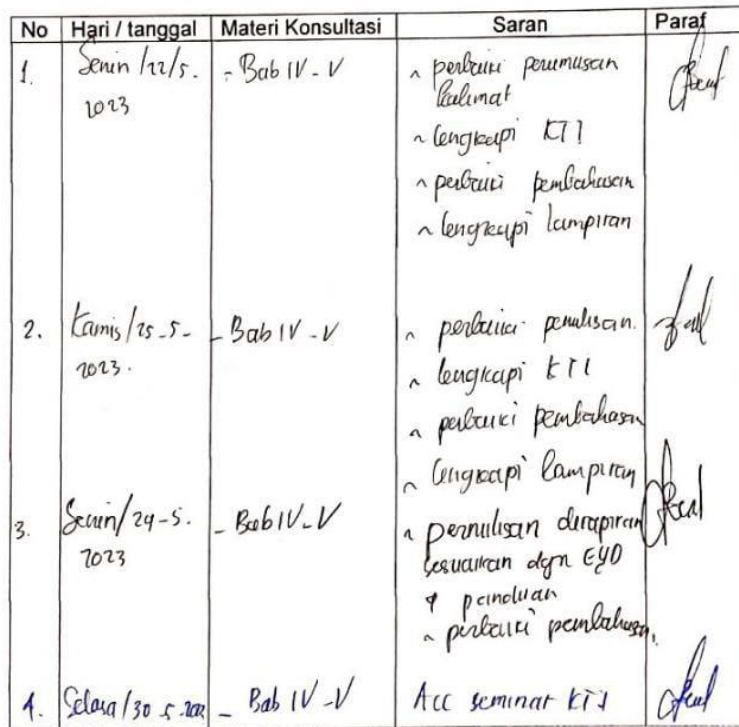 No Hari / tanggal Materi Konsultasi Saran Paraf
1. Senin /22/5. - Bab IV - V ~ perbaiki perumusan
2023 kalimat
~ lengkapi KTI
~ perbaiki pembahasan
~ lengkapi lampiran
2. Kamis /25-5- - Bab IV - V ~ perbaiki penulisan.
2023. ~ lengkapi KTI
~ perbaiki pembahasan
~ lengkapi lampiran
3. Senin/29-5. - Bab IV - V ~ penulisan dirapikan
2023 sesuaikan dgn EYD
& panduan
~ perbaiki pembahasan.
4. Selasa/30-5-2023 - Bab IV - V Acc seminar KTI